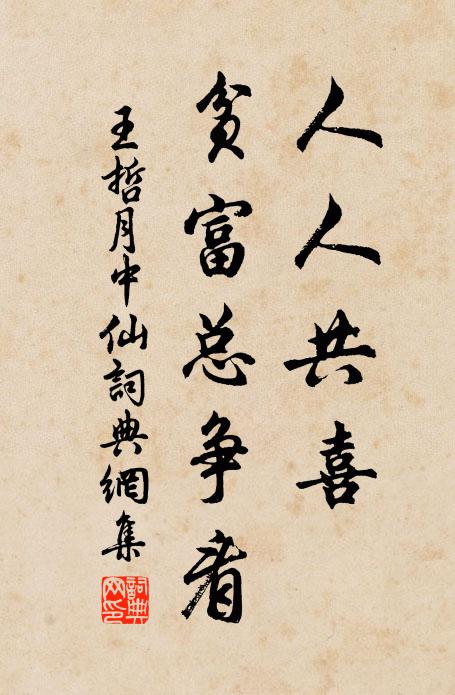 人人共喜
贫富总争看
王哲月中仙詞典網集
詞典网印